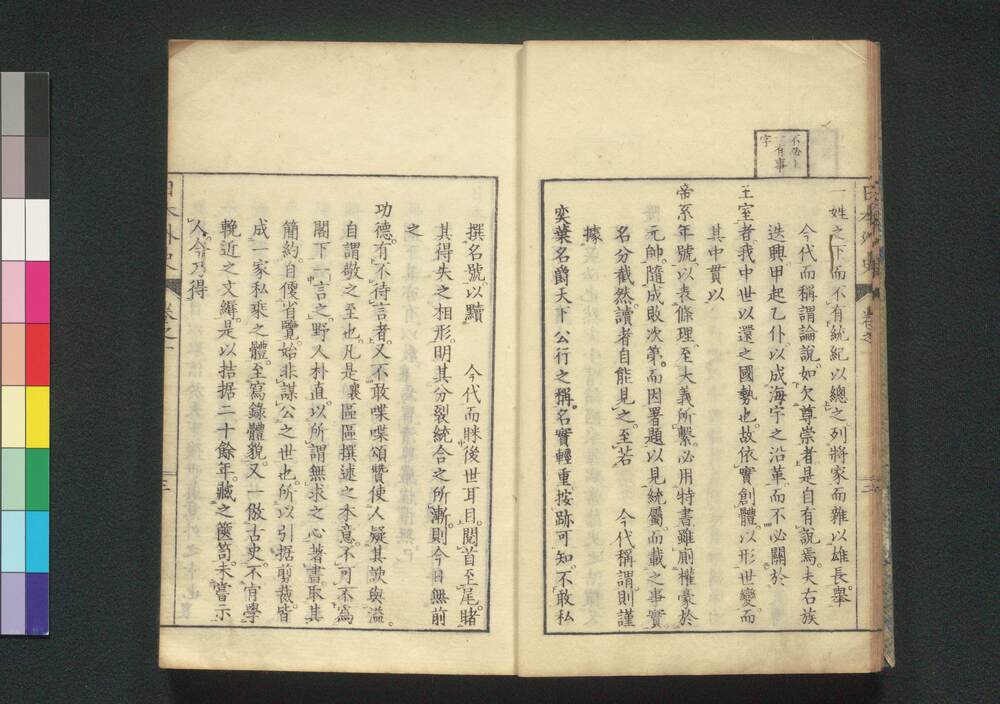 不必上
一有事
字
一姓之下而不有統紀以總之列將家而雜以雄長舉
今代而稱謂論說如欠尊崇者是自有說焉夫右族
迭興甲起乙仆以成海宇之沿革而不必關於
王室者我中世以還之國勢也故依實創體以形世變而
其中貫以
帝系年號以表條理至大義所繫必用特書雖廁權豪於
元帥隨成敗次第而因署題以見統屬而載之事實
名分截然讀者自能見之至若 今代稱謂則謹
據
奕葉名爵天下公行之稱名實輕重按跡可知不敢私
日本外史 卷之一 三
撰名號以黷 今代而眯後世耳目閱首至尾睹
其得失之相形明其分裂統合之所漸則今日無前
之
功德有不待言者又不敢喋喋頌贊使人疑其諛與溢
自謂敬之至也凡是襄區區撰述之本意不可不為
閣下一言之野人朴直以所謂無求之心著書取其
簡約自便省覽始非謀公之世也所以引据剪裁皆
成一家私乘之體至寫錄體貌又一倣古史不肎學
輓近之文縟是以拮据二十餘年藏之篋笥未嘗示
人今乃得
日本外史 卷之一